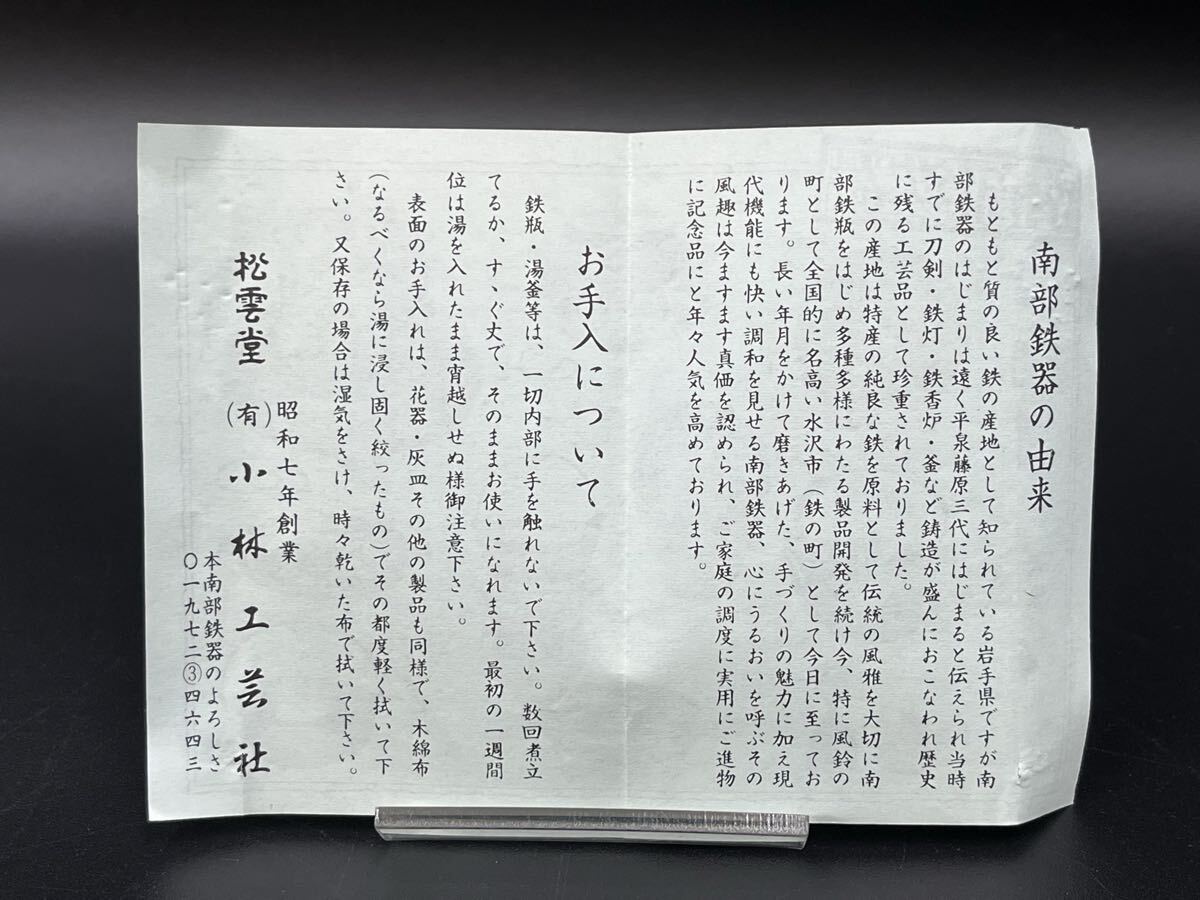 南部鉄器の由来
もともと質の良い鉄の産地として知られている岩手県ですが南
部鉄器のはじまりは遠く平泉藤原三代にはじまると伝えられ当時
すでに刀剣・鉄灯・鉄香炉・釜など鋳造が盛んにおこなわれ歴史
に残る工芸品として珍重されておりました。
この産地は特産の純良な鉄を原料として伝統の風雅を大切に南
部鉄瓶をはじめ多種多様にわたる製品開発を続け今、特に風鈴の
町として全国的に名高い水沢市（鉄の町）として今日に至ってお
ります。長い年月をかけて磨きあげた、手づくりの魅力に加え現
代機能にも快い調和を見せる南部鉄器、心にうるおいを呼ぶその
風趣は今ますます真価を認められ、ご家庭の調度に実用にご進物
に記念品にと年々人気を高めております。
お手入について
鉄瓶・湯釜等は、一切内部に手を触れないで下さい。数回煮立
てるか、すゝぐ丈で、そのままお使いになれます。最初の一週間
位は湯を入れたまま宵越しせぬ様御注意下さい。
表面のお手入れは、花器・灰皿その他の製品も同様で、木綿布
(なるべくなら湯に浸し固く絞ったもの)でその都度軽く拭いて下
さい。又保存の場合は湿気をさけ、時々乾いた布で拭いて下さい。
昭和七年創業
松雲堂 (有)小林工芸社
本南部鉄器のよろしさ
〇一九七二③四六四三